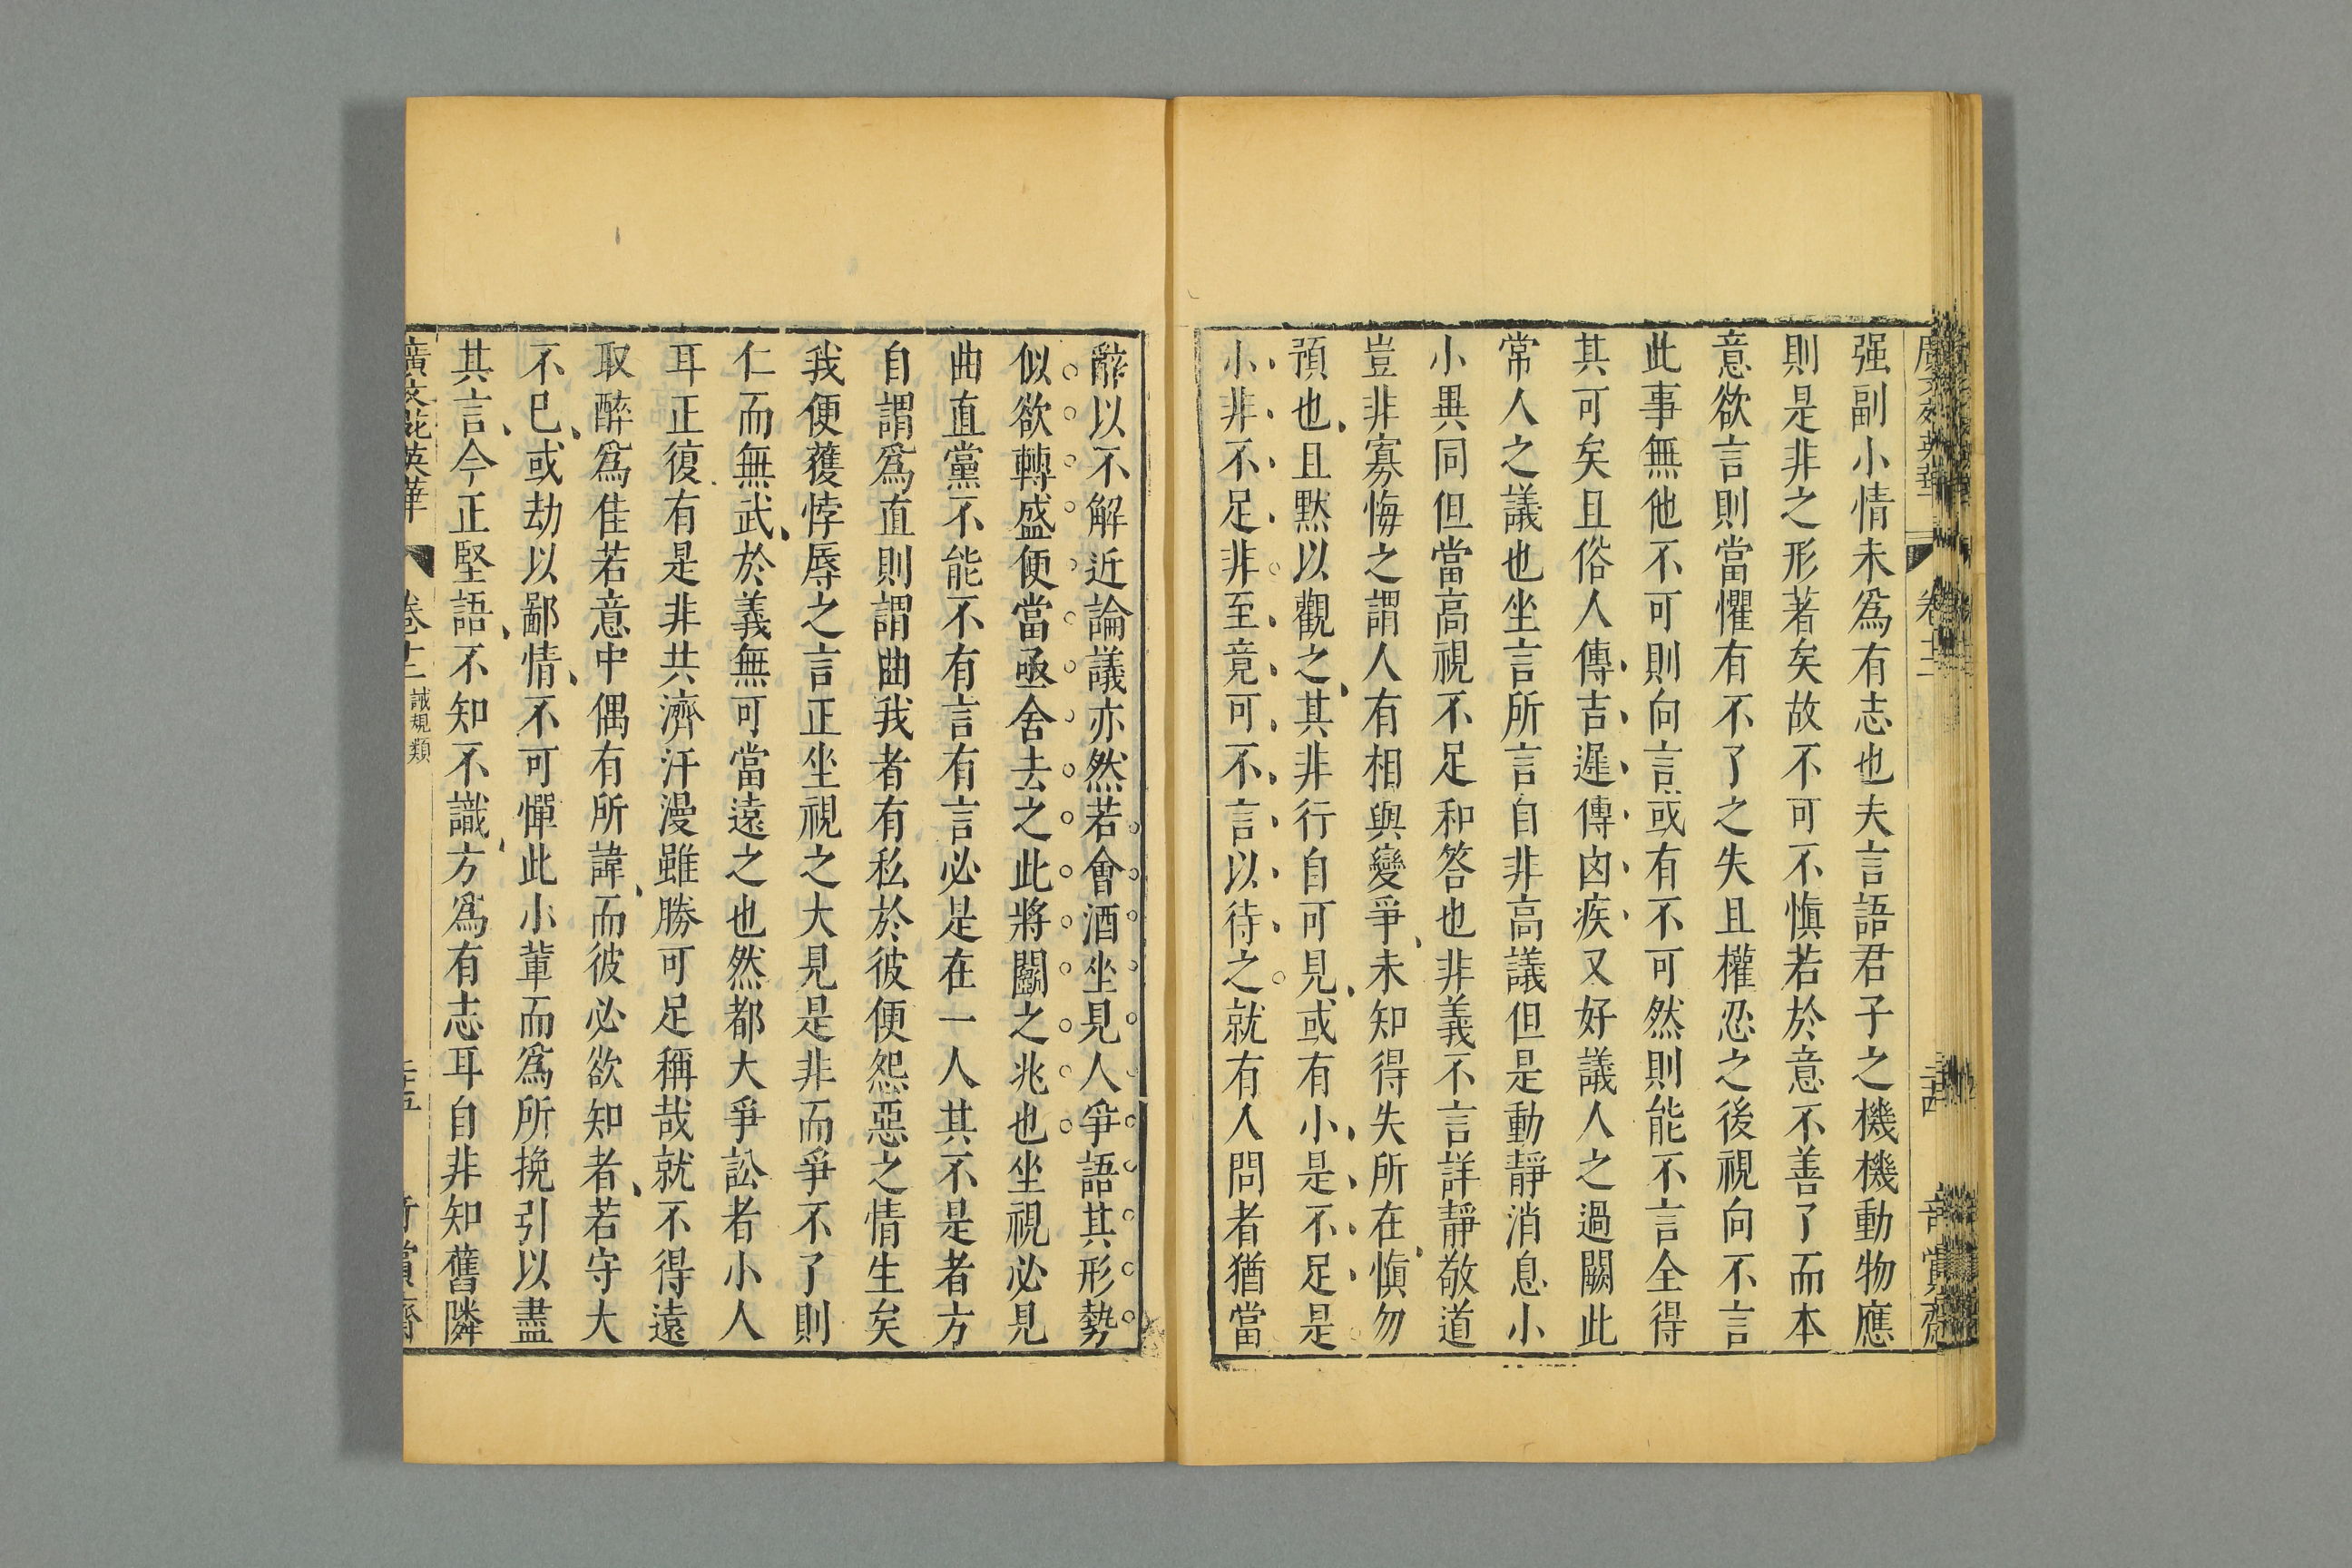 强副小情未爲有志也夫言語君子之機機動物應
則是非之形著矣故不可不愼若於意不善了而本
意欲言則當懼有不了之失且權忍之後視向不言
此事無他不可則向言或有不可然則能不言全得
其可矣且俗人傳吉遲傳凶疾又好議人之過闕此
常人之議也坐言所言自非高議但是動靜消息小
小異同但當高視不足和答也非義不言詳靜敬道
豈非寡悔之謂人有相與變爭未知得失所在愼勿
預也且默以觀之其非行自可見或有小是不足是
小非不足非至竟可不言以待之就有人問者猶當
辭以不解近論議亦然若會酒坐見人爭語其形勢
似欲轉盛便當亟舍去之此將鬭之兆也坐視必見
曲直黨不能不有言有言必是在一人其不是者方
自謂爲直則謂曲我者有私於彼便怨惡之情生矣
我便獲悖辱之言正坐視之大見是非而爭不了則
仁而無武於義無可當遠之也然都大爭訟者小人
耳正復有是非共濟汗漫雖勝可足稱哉就不得遠
取醉爲佳若意中偶有所諱而彼必欲知者若守大
不已或劫以鄙情不可憚此小輩而爲所挽引以盡
其言今正堅語不知不識方爲有志耳自非知舊隣
廣文苑英華 卷十二 誡規類